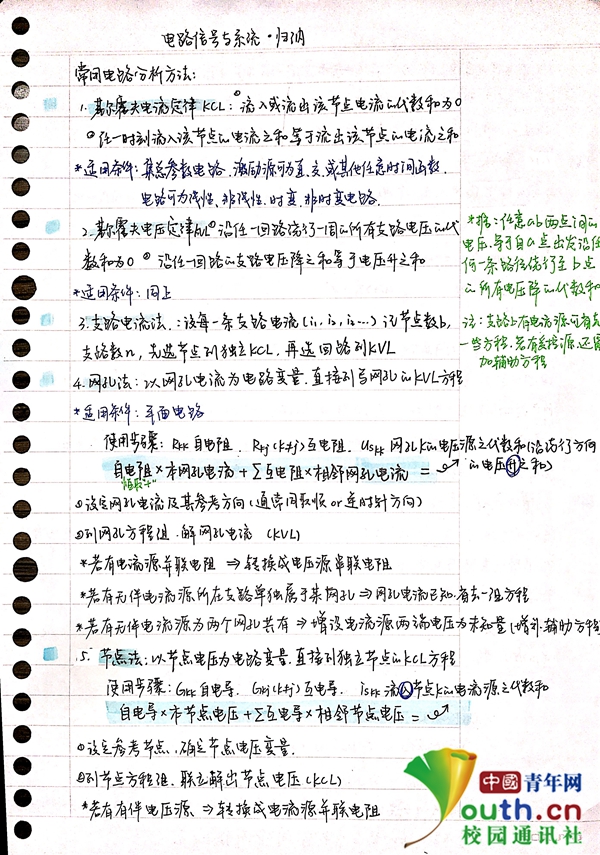 电路信号与系统·归纳
常用电路分析方法:
1.基尔霍夫电流定律KCL:①流入或流出该节点电流的代数和为0
②任一时刻流入该节点的电流之和等于流出该节点的电流之和
*适用条件:集总参数电路.激励源可为直、交或其他任意时间函数.
电路可为线性、非线性、时变、非时变电路.
2.基尔霍夫电压定律KVL①沿任一回路绕行一周的所有支路电压的代
数和为0 ②沿任一回路的支路电压降之和等于电压升之和
*适用条件:同上
3.支路电流法.:设每一条支路电流(i₁,i₂,i₃…)记节点数n,
支路数n,先选节点列独立KCL,再选回路列KVL
4.网孔法:以网孔电流为电路变量.直接列写网孔的KVL方程
*适用条件:平面电路
使用步骤:Rkk自电阻.Rkj(k≠j)互电阻.Uskk网孔k的电压源之代数和(沿绕行方向
自电阻×本网孔电流+∑互电阻×相邻网孔电流= 的电压升之和)
恒取"+"
①设定网孔电流及其参考方向(通常同取顺or逆时针方向)
②列网孔方程组.解网孔电流 (KVL)
*若有电流源并联电阻⇒转换成电压源串联电阻
*若有无伴电流源所在支路单独属于某网孔⇒网孔电流已知.省去一组方程
*若有无伴电流源为两个网孔共有⇒增设电流源两端电压为未知量(增补.辅助方程
5.节点法:以节点电压为电路变量.直接列独立节点的KCL方程
使用步骤:Gkk自电导.Gkj(k≠j)互电导.iskk流入节点k的电流源之代数和
自电导×本节点电压+∑互电导×相邻节点电压=
①设定参考节点.确定节点电压变量.
②列节点方程组.联立解出节点电压(KCL)
*若有有伴电压源⇒转换成电流源并联电阻
*推:任意ab两点间的
电压.等于自a点出发沿任
何一条路径绕行至b点
的所有电压降的代数和
注:支路上有电流源可省去
一些方程.若有受控源.还需
加辅助方程
中國青年网
youth.cn
校园通讯社